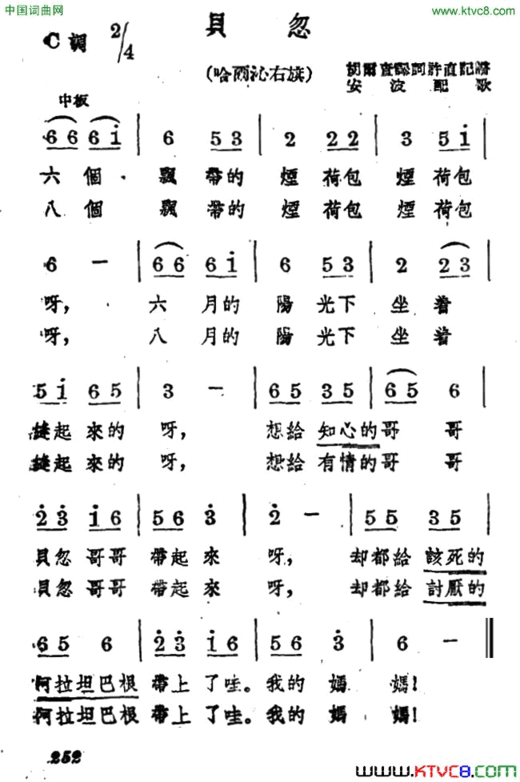 中国词曲网
www.ktvc8.com
C調 2/4
貝忽
(哈爾沁右旗)
胡爾查譯詞 許直記譜
安波配歌
中板
6 6 6 i | 6 5 3 | 2 2 2 | 3 5 i |
六個 飄帶的 煙荷包 煙荷包
八個 飄帶的 煙荷包 煙荷包
6 − | 6 6 6 i | 6 5 3 | 2 2 3 |
呀, 六月的 陽光下 坐着
呀, 八月的 陽光下 坐着
5 i 6 5 | 3 − | 6 5 3 5 | 6 5 6 |
縫起來的 呀, 想給知心的哥哥
縫起來的 呀, 想給有情的哥哥
2 3 i 6 | 5 6 3 | 2 − | 5 5 3 5 |
貝忽哥哥 帶起來 呀, 却都給該死的
貝忽哥哥 帶起來 呀, 却都給討厭的
6 5 6 | 2 3 i 6 | 5 6 3 | 6 − ‖
阿拉坦巴根 帶上了哇。我的 媽 媽!
阿拉坦巴根 帶上了哇。我的 媽 媽!
252
www.KTVC8.com